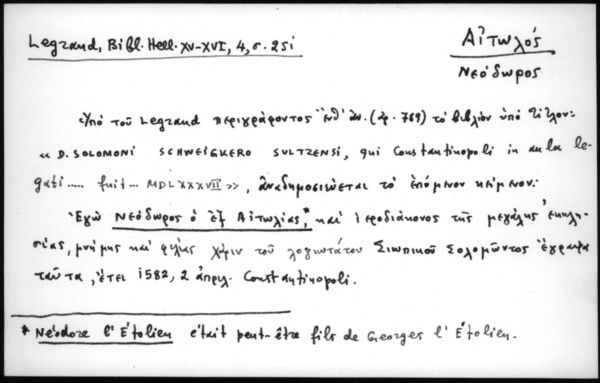 Legrand, Bibl. Hell. XV-XVI, 4, σ. 251
Αἰτωλός
Νεόδωρος
Ὑπό τοῦ Legrand περιγράφοντος ἐνθ' ἀν. (ἀρ. 789) τό βιβλίον ὑπό τίτλον:
« D. SOLOMONI SCHWEIGKERO SULTZENSI, qui Constantinopoli in aula le-
gati ..... fuit ... MDLXXXVII », ἀναδημοσιεύεται τό ἑπόμενον κείμενον:
Ἐγώ Νεόδωρος ὁ ἐξ Αἰτωλίας,* καί ἱεροδιάκονος τῆς μεγάλης ἐκκλη-
σίας, μνήμης καί φιλίας χάριν τοῦ λογιωτάτου Σιωπικοῦ Σολομῶντος ἔγραψα
ταῦτα, ἔτει 1582, 2 ἀπριλ. Constantinopoli.
* Néodore l'Étolien était peut-être fils de Georges l'Étolien.